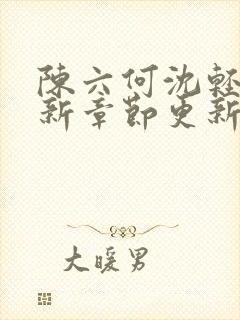 陳六何沈輕
新章節更新
大暖男